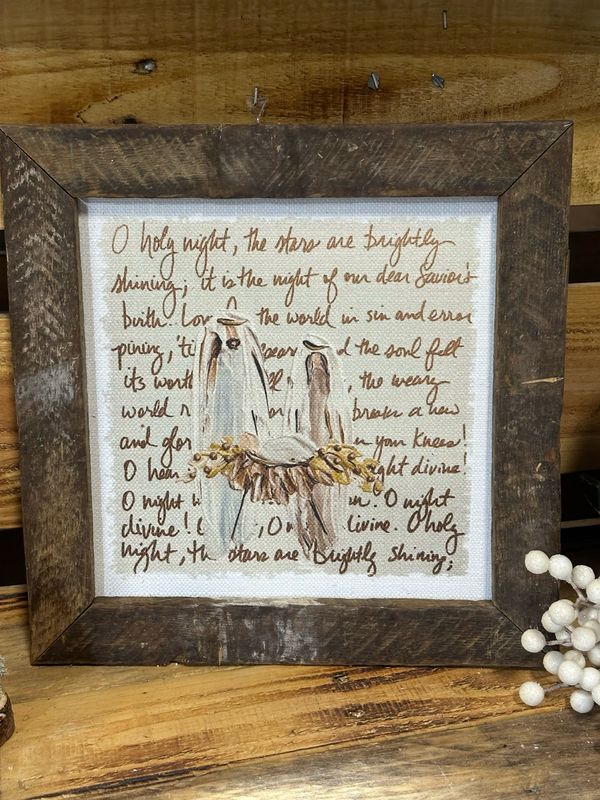 O holy night, the stars are brightly
shining; it is the night of our dear Savior's
birth. the world in sin and error
pining, d the soul felt
its worth , the weary
world breaks a new
and glor n your knees!
O hear ght divine!
O night O night
divine! , O livine. O holy
night, th stars are brightly shining;